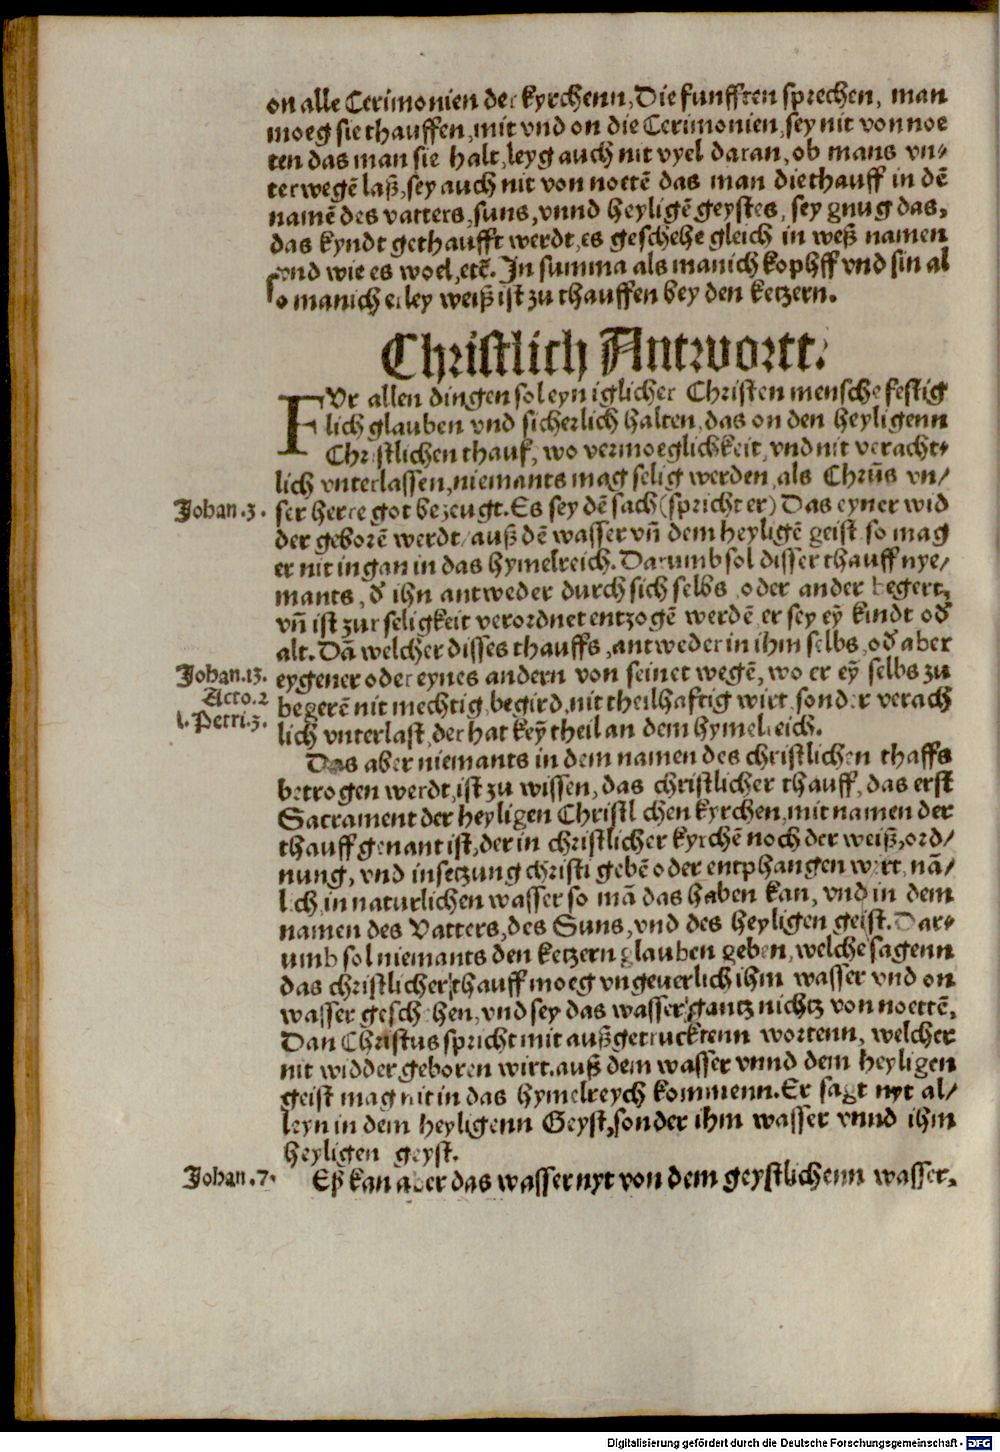 on alle Cerimonien der kyrchenn, Die funfften sprechen, man
moeg sie thauffen, mit vnd on die Cerimonien, sey nit von noe
ten das man sie halt, leyg auch nit vyel daran, ob mans vn-
terwegē laß, sey auch nit von noetē das man die thauff in dē
namē des vatters, suns, vnnd heyligē geystes, sey gnug das,
das kyndt gethaufft werdt, es geschehe gleich in weß namen
vnd wie es woel, etc. In summa als manich kophff vnd sin al
so manicherley weiß ist zu thauffen bey den ketzern.
Christlich Antwortt.
FUr allen dingen sol eyn iglicher Christen mensche festig
lich glauben vnd sicherlich halten, das on den heyligenn
Christlichen thauf, wo vermoeglichkeit, vnd nit veracht-
lich vnterlassen, niemants mag selig werden, als Chrūs vn/
Johan.3. ser herre got bezeugt. Es sey dē sach (spricht er) Das eyner wid
der geborē werdt/ auß dē wasser vñ dem heyligē geist so mag
er nit ingan in das hymelreich. Darumb sol disser thauff nye/
mants, d̄ ihn antweder durch sich selbs oder ander begert,
vñ ist zur seligkeit verordnet entzogē werdē, er sey eȳ kindt od̄
alt. Dā welcher disses thauffs, antweder in ihm selbs, od̄ aber
Johan.13. eygener oder eynes andern von seinet wegē, wo er eȳ selbs zu
Acto.2 begerē nit mechtig, begird, nit theilhaftig wirt, sonder verach
1. Petri.3. lich vnterlast, der hat keȳ theil an dem hymelreich.
Das aber niemants in dem namen des christlichen thaffs
betrogen werdt, ist zu wissen, das christlicher thauff, das erst
Sacrament der heyligen Christlichen kyrchen, mit namen der
thauff genant ist, der in christlicher kyrchē noch der weiß, ord/
nung, vnd insetzung christi gebē oder entphangen wirt, nā/
lich in naturlichen wasser so mā das haben kan, vnd in dem
namen des Vatters, des Suns, vnd des heyligen geist. Dar-
umb sol niemants den ketzern glauben geben, welche sagenn
das christlicher thauff moeg vngeuerlich ihm wasser vnd on
wasser geschehen, vnd sey das wasser gantz nichtz von noettē,
Dan Christus spricht mit außgetrucktenn wortenn, welcher
nit widder geboren wirt. auß dem wasser vnnd dem heyligen
geist mag nit in das hymelreych kommenn. Er sagt nyt al/
leyn in dem heyligenn Geyst, sonder ihm wasser vnnd ihm
heyligen geyst.
Johan.7. Eß kan aber das wasser nyt von dem geystlichenn wasser,
Digitalisierung gefördert durch die Deutsche Forschungsgemeinschaft - DFG